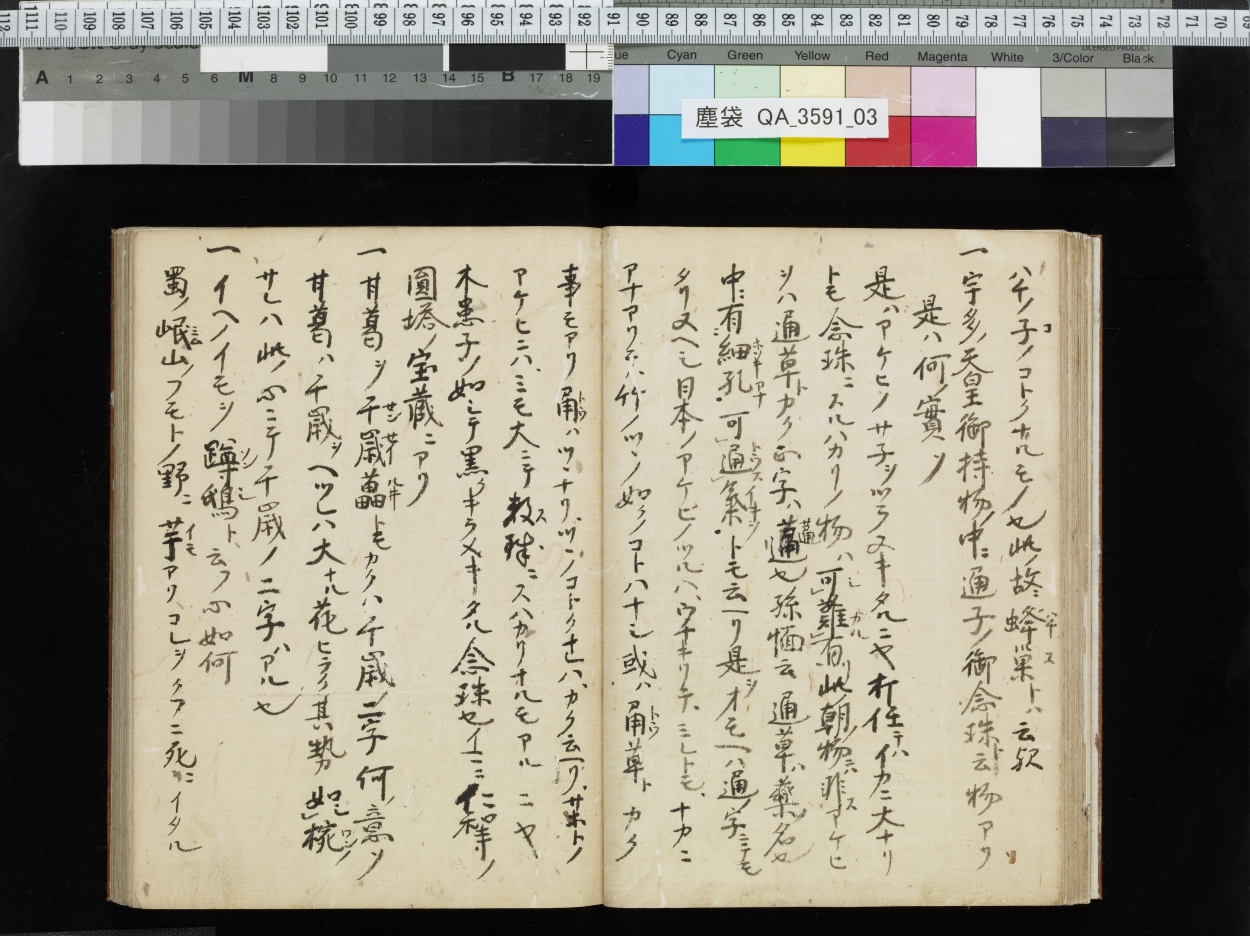 塵袋 QA_3591_03
Cyan
Green
Yellow
Red
Magenta
White
3/Color
Black
LICENSED PRODUCT
A 1 2 3 4 5 6 M 8 9 10 11 12 13 14 15 B 17 18 19
ハチノ子ノコトクナルモノ也此故ニ蜂巣トハ云歟
一宇多ノ天皇御持物ノ中ニ通子ノ御念珠ト云物アリ
是ハ何ノ實ソ
是ハアケヒノサ子ヲツラヌキタルニヤ但イカニ大ナリ
トモ念珠ニスルハカリノ物ハ可難有此朝ノ物ニハ非スアケヒ
ヲハ通草トカク
孫愐云通草ハ藥ノ名也
中ニ有細孔可通氣トモ云ヘリ是ヲオモヘハ通ノ字ニテモ
タリヌヘシ日本ノアケビノツルハウチキリテミレトモナカニ
アナアリテ竹ノツヽノ如クノコトハナシ或ハ甬草トカク
事モアリ甬ハツヽナリツヽノコトクナレハカク云ヘリサホトノ
アケヒニハミモ大ニテ数珠ニスハカリナルモアルニヤ
木患子ノ如シテ黒クキラメキタル念珠也イマニ仁和寺ノ
圓塔ノ宝蔵ニアリ
一甘葛ヲ千歳虆トモカクハ千歳ノ二字何ノ意ソ
甘葛ハ千歳ヲヘツレハ大ナル花ヒラク其勢如椀
サレハ此ノ心ニテ千歳ノ二字ハアル也
一イヘノイモヲ蹲鴟ト云フ心如何
蜀ノ岷山ノフモトノ野ニ芋アリコレヲクフニ死ニイタル